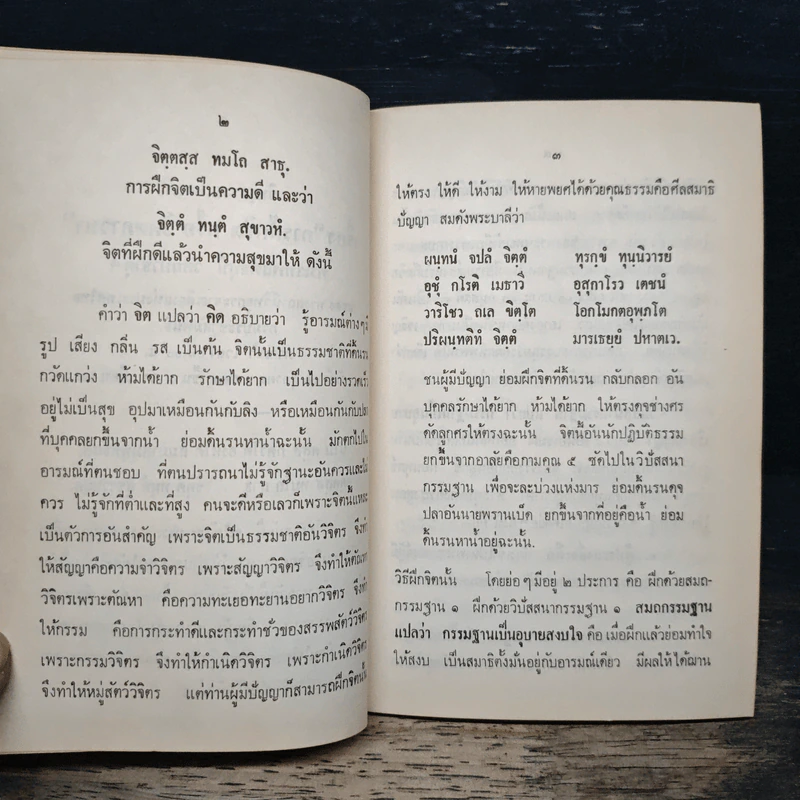 ๒
จิตฺตสฺส ทมโถ สาธุ.
การฝึกจิตเป็นความดี และว่า
จิตฺตํ ทนฺตํ สุขาวหํ.
จิตที่ฝึกดีแล้วนำความสุขมาให้ ดังนี้
คำว่า จิต แปลว่า คิด อธิบายว่า รู้อารมณ์ต่างๆมี
รูป เสียง กลิ่น รส เป็นต้น จิตนั้นเป็นธรรมชาติที่ดิ้นรน
กวัดแกว่ง ห้ามได้ยาก รักษาได้ยาก เป็นไปอย่างรวดเร็ว
อยู่ไม่เป็นสุข อุปมาเหมือนกันกับลิง หรือเหมือนกันกับปลา
ที่บุคคลยกขึ้นจากน้ำ ย่อมดิ้นรนหาน้ำฉะนั้น มักตกไปใน
อารมณ์ที่ตนชอบ ที่ตนปรารถนาไม่รู้จักฐานะอันควรและไม่
ควร ไม่รู้จักที่ต่ำและที่สูง คนจะดีหรือเลวก็เพราะจิตนี้แหละ
เป็นตัวการอันสำคัญ เพราะจิตเป็นธรรมชาติอันวิจิตร จึงทำ
ให้สัญญาคือความจำวิจิตร เพราะสัญญาวิจิตร จึงทำให้ตัณหา
วิจิตรเพราะตัณหา คือความทะเยอทะยานอยากวิจิตร จึงทำ
ให้กรรม คือการกระทำดีและกระทำชั่วของสรรพสัตว์วิจิตร
เพราะกรรมวิจิตร จึงทำให้กำเนิดวิจิตร เพราะกำเนิดวิจิตร
จึงทำให้หมู่สัตว์วิจิตร แต่ท่านผู้มีปัญญาก็สามารถฝึกจิตนั้น
๓
ให้ตรง ให้ดี ให้งาม ให้หายพยศได้ด้วยคุณธรรมคือศีลสมาธิ
ปัญญา สมดังพระบาลีว่า
ผนฺทนํ จปลํ จิตฺตํ ทุรกฺขํ ทุนฺนิวารยํ
อุชุํ กโรติ เมธาวี อุสุกาโรว เตชนํ
วาริโชว ถเล ขิตฺโต โอกโมกตอุพฺภโต
ปริผนฺทติทํ จิตฺตํ มารเธยฺยํ ปหาตเว.
ชนผู้มีปัญญา ย่อมฝึกจิตที่ดิ้นรน กลับกลอก อัน
บุคคลรักษาได้ยาก ห้ามได้ยาก ให้ตรงดุจช่างศร
ดัดลูกศรให้ตรงฉะนั้น จิตนี้อันนักปฏิบัติธรรม
ยกขึ้นจากอาลัยคือกามคุณ ๕ ซัดไปในวิปัสสนา
กรรมฐาน เพื่อจะละบ่วงแห่งมาร ย่อมดิ้นรนดุจ
ปลาอันนายพรานเบ็ด ยกขึ้นจากที่อยู่คือน้ำ ย่อม
ดิ้นรนหาน้ำอยู่ฉะนั้น.
วิธีฝึกจิตนั้น โดยย่อๆมีอยู่ ๒ ประการ คือ ฝึกด้วยสมถ-
กรรมฐาน ๑ ฝึกด้วยวิปัสสนากรรมฐาน ๑ สมถกรรมฐาน
แปลว่า กรรมฐานเป็นอุบายสงบใจ คือ เมื่อฝึกแล้วย่อมทำใจ
ให้สงบ เป็นสมาธิตั้งมั่นอยู่กับอารมณ์เดียว มีผลให้ได้ฌาน